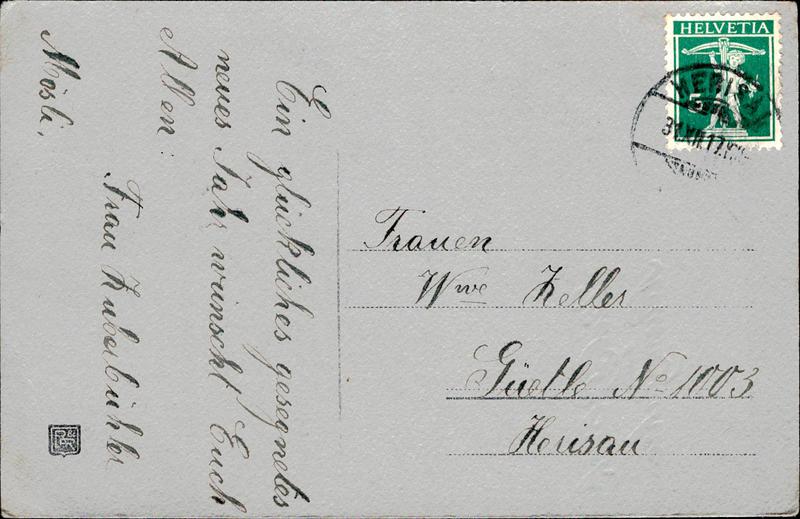 Ein glückliches gesegnetes
neues Jahr wünscht Euch
Allen:
Frau Zuberbühler
Mösli.
HELVETIA
5
HERISAU
31.XII.17.
Frauen
Wwe Zeller
Güetle No 1003
Herisau